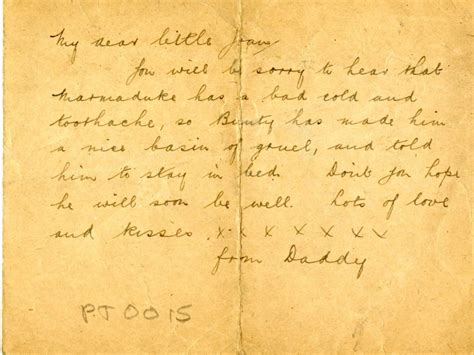 My dear little Joan,
You will be sorry to hear that
Marmaduke has a bad cold and
toothache, so Bunty has made him
a nice basin of gruel, and told
him to stay in bed. Don't you hope
he will soon be well. Lots of love
and kisses. x x x x x x x
from Daddy
PJ 0015